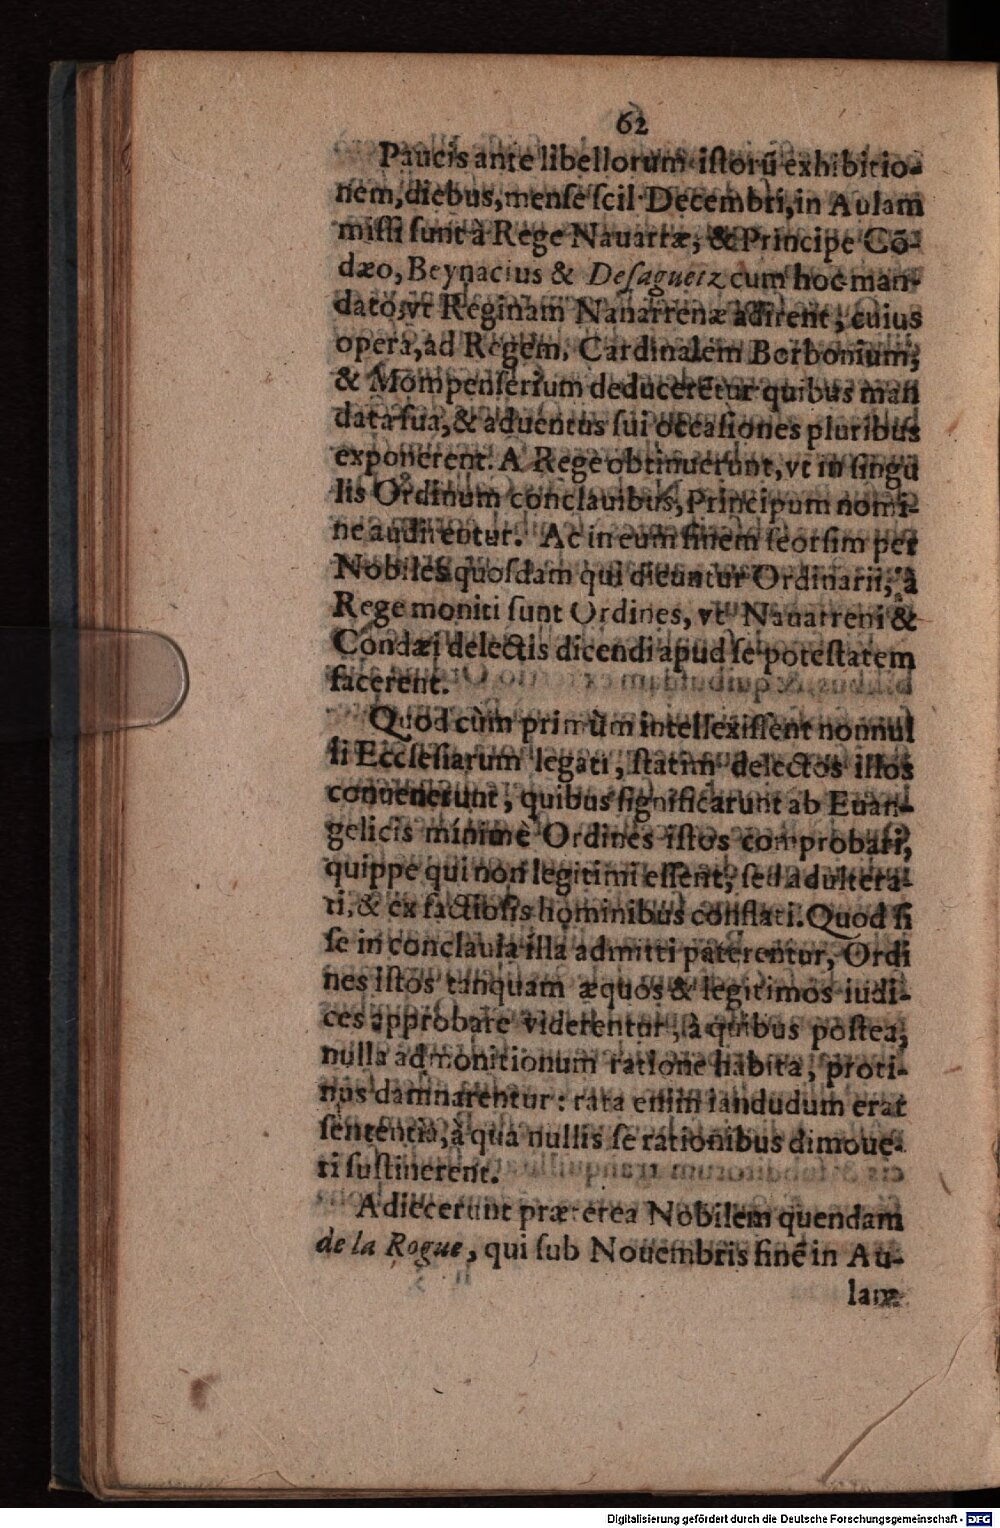 62
Paucis ante libellorum istorũ exhibitio-
nem, diebus, mense scil. Decembri, in Aulam
missi sunt à Rege Nauarræ, & Principe Cõ-
dæo, Beynacius & Desagueiz cum hoc man-
dato, vt Reginam Nauarrenæ adirent, cuius
opera, ad Regem, Cardinalem Borbonium,
& Mompenserium deducerẽtur quibus man
data sua, & aduentus sui occasiones pluribus
exponerent. A Rege obtinuerunt, vt in singu
lis Ordinum conclauibus, Principum nomi-
ne audirentur. Ac in eum finem seorsim per
Nobiles quosdam qui dicuntur Ordinarii, à
Rege moniti sunt Ordines, vt Nauarreni &
Condæi delectis dicendi apud se potestatem
facerent.
Quod cùm primùm intellexissent nonnul
li Ecclesiarum legati, statim delectos illos
conuenerunt, quibus significarunt ab Euan-
gelicis minimè Ordines istos comprobari,
quippe qui non legitimi essent, sed adultera-
ti, & ex factiosis hominibus conflati. Quod si
se in conclauia illa admitti paterentur, Ordi
nes istos tanquam æquos & legitimos iudi-
ces approbare viderentur, à quibus postea,
nulla admonitionum ratione habita, proti-
nus damnarentur: rata enim iandudum erat
sententia, à qua nullis se rationibus dimoue-
ri sustinerent.
Adiecerunt præterea Nobilem quendam
de la Rogue, qui sub Nouembris finẽ in Au-
lam
Digitalisierung gefördert durch die Deutsche Forschungsgemeinschaft - DFG